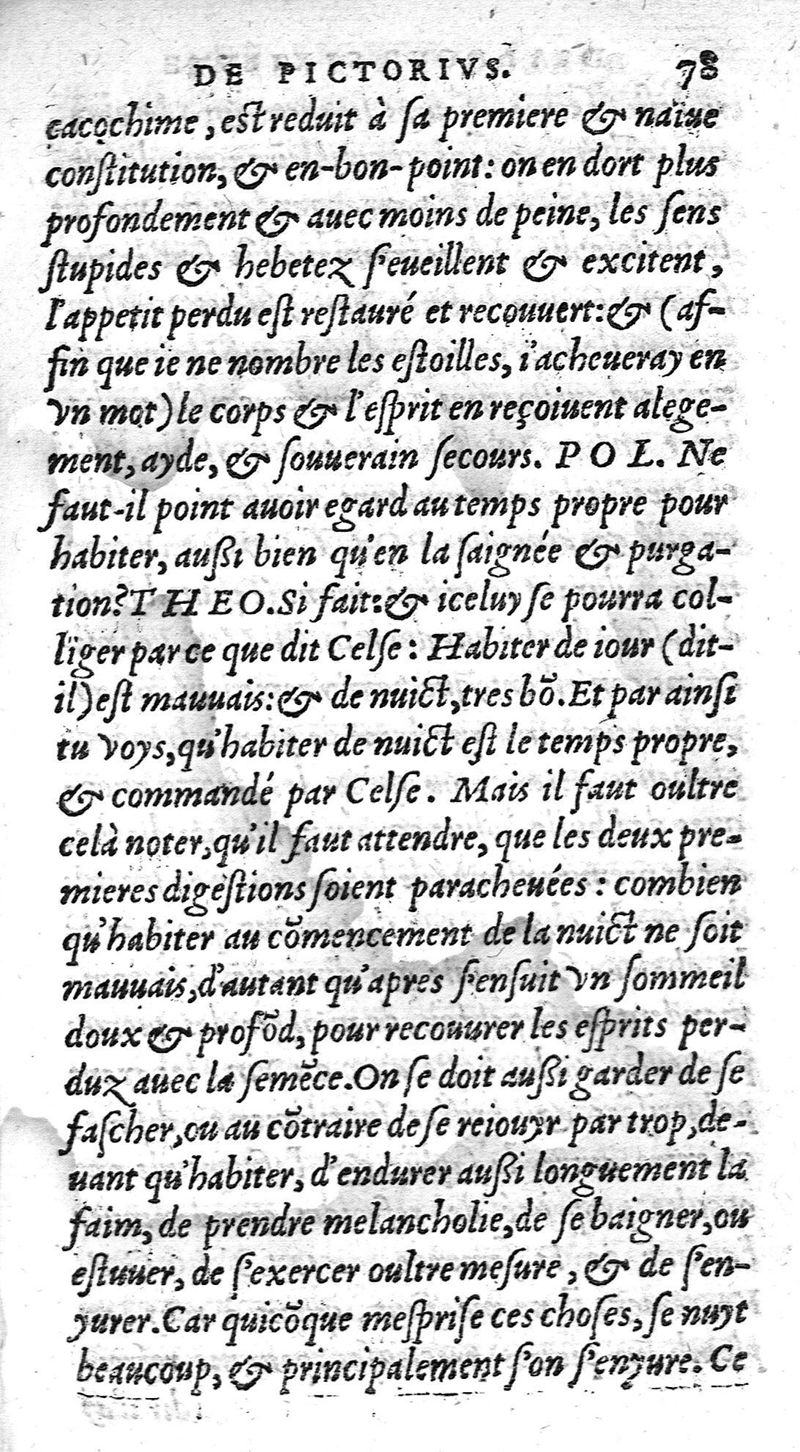 DE PICTORIVS. 78
cacochime, est reduit à sa premiere & naïue
constitution, & en-bon-point: on en dort plus
profondement & auec moins de peine, les sens
stupides & hebetez s'eueillent & excitent,
l'appetit perdu est restauré et recouuert: & (af-
fin que ie ne nombre les estoilles, i'acheueray en
vn mot) le corps & l'esprit en reçoiuent alege-
ment, ayde, & souuerain secours. POL. Ne
faut-il point auoir egard au temps propre pour
habiter, außi bien qu'en la saignée & purga-
tion? THEO. Si fait: & iceluy se pourra col-
liger par ce que dit Celse: Habiter de iour (dit-
il) est mauuais: & de nuict, tres bõ. Et par ainsi
tu voys, qu'habiter de nuict est le temps propre,
& commandé par Celse. Mais il faut oultre
celà noter, qu'il faut attendre, que les deux pre-
mieres digestions soient paracheuées: combien
qu'habiter au cõmencement de la nuict ne soit
mauuais, d'autant qu'apres s'ensuit vn sommeil
doux & profõd, pour recouurer les esprits per-
duz auec la semẽce. On se doit außi garder de se
fascher, ou au cõtraire de se reiouyr par trop, de-
uant qu'habiter, d'endurer außi longuement la
faim, de prendre melancholie, de se baigner, ou
estuuer, de s'exercer oultre mesure, & de s'en-
yurer. Car quicõque mesprise ces choses, se nuyt
beaucoup, & principalement s'on s'enyure. Ce